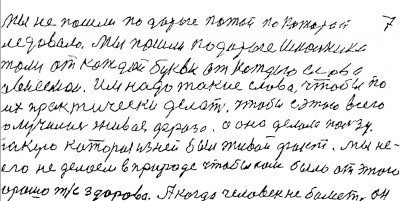 Мы не пошли по дороге по той по которой 7
ледовало. Мы пошли по дороге
толи от каждой буквы от каждого слова
. Им надо такие слова, чтобы по
их практически делат, чтобы с этого всего
олучилися живая . а оно делала ползу.
такую которая из ней был живой факт. Мы не-
его не делаем в природе чтобы нам было от этого
орашо т/е здорова. А когда человек не балеет, он